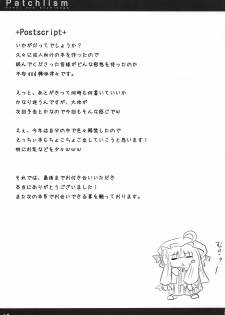 Patchlism
+Postscript+
いかがだってでしょうか？
久々に成人向けの本を作ったので
読んでくださった皆様がどんな感想を持ったのか
不安ddd興味津々です。
えっと、あとがきって何時も何書いていいか
かなり迷うんですが、大体が
次回予告とかなので今回もそんな感じでｗ
えぇ、今年は自分の中で色々解禁したので
えっちい本もちょこちょこ出していこうと思います！
特にお乳などを少々ｗｗｗ
それでは、最後までお付き合いいただき
本当にありがとうございました！
また次の本等でお会いできる事を願っております。
むきゅー！